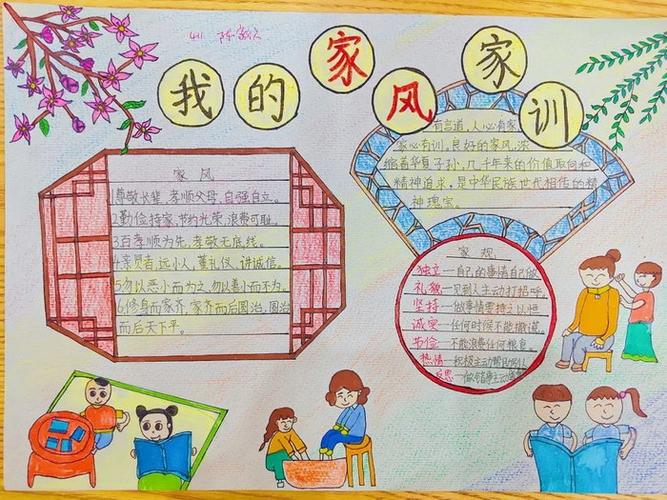 我的家风家训
家风
1尊敬长辈,孝顺父母,自强自立。
2勤俭持家,节约光荣,浪费可耻。
3百孝顺为先,孝敬无底线。
4亲贤者,远小人,董礼仪,讲诚信。
5勿以恶小而为之,勿以善小而不为。
6.修身而家齐,家齐而后国治,国治
而后天下平。
有言道,人必有家,
家必有训,良好的家风,浓
缩着华夏子孙,几千年来的价值取向和
精神追求,是中华民族世代相传的精
神瑰宝。
家规
独立—自己的事情自己做
礼貌—见到人主动打招呼。
坚持—做事情要持之以恒
诚实—任何时候不能撒谎。
节俭—不能浪费任何粮食。
热情—积极主动帮助
反思—做错事主动